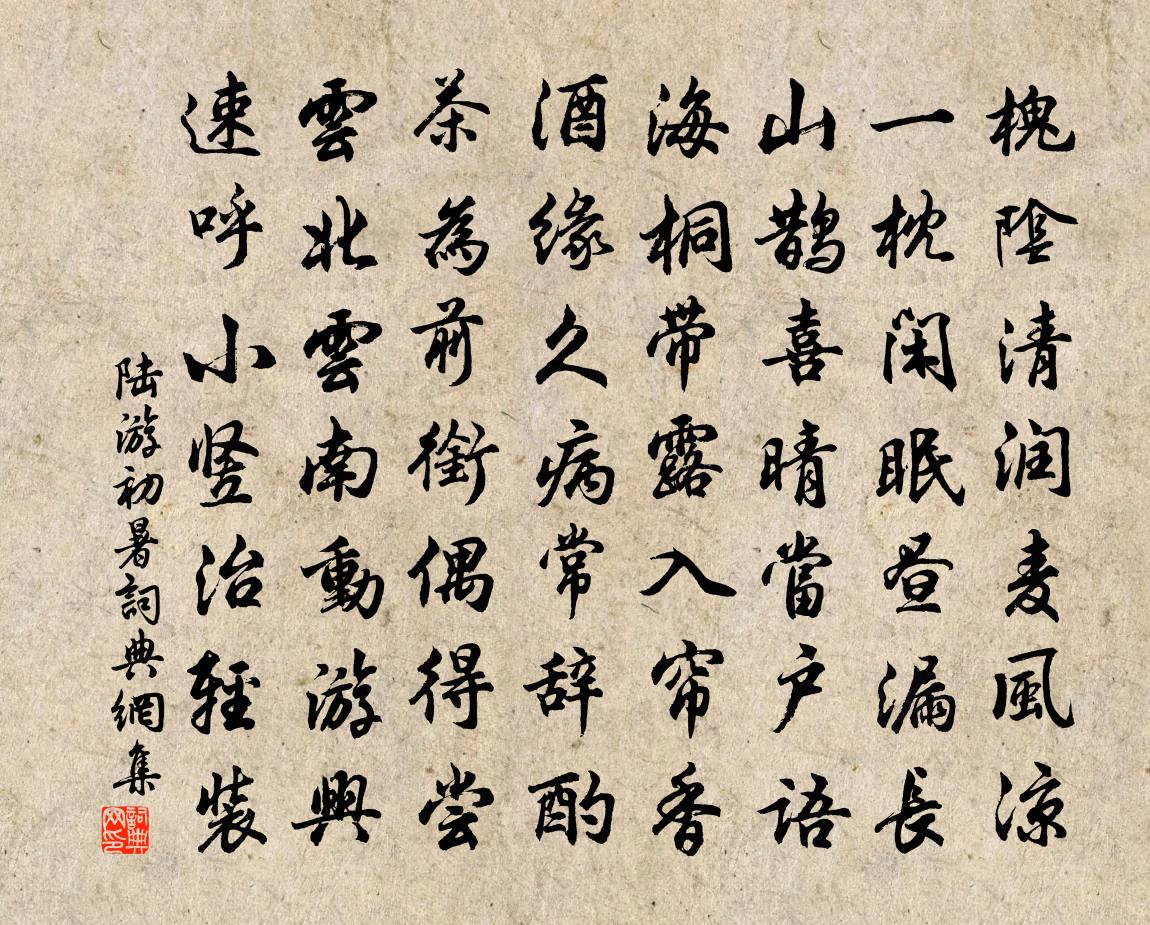 槐陰清润麦風涼
一枕闲眠昼漏長
山鹊喜晴當户语
海桐带露入帘香
酒缘久病常辞酌
茶為前銜偶得尝
雲北雲南動游興
速呼小竖治輕装
陆游初暑詞典網集
詞典網印